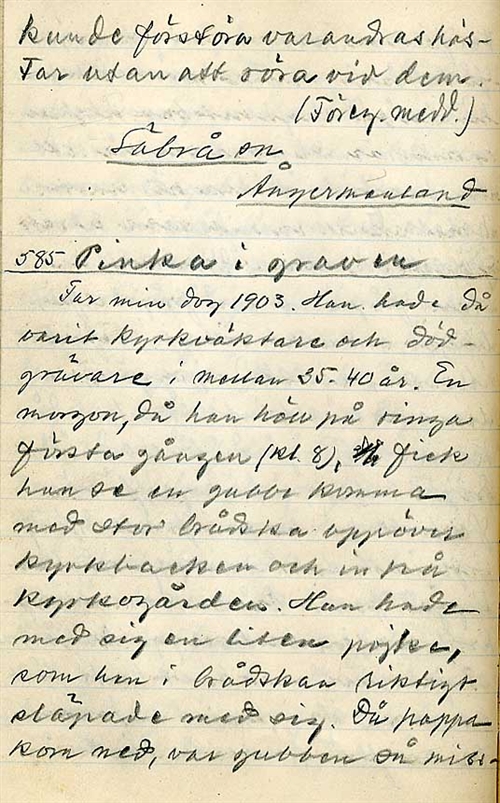 kunde förstöra varandras häs-
tar utan att röra vid dem.
(Föreg. medd.)
Säbrå sn
Ångermanland
585. Pinka i graven
Far min dog 1903. Han hade då
varit kyrkväktare och död-
grävare i mellan 35-40 år. En
morgon, då han höll på ringa
första gången (kl. 8), fick
han se en gubbe komma
med stor brådska uppöver
kyrkbacken och in på
kyrkogården. Han hade
med sig en liten pojke,
som han i brådskan riktigt
släpade med sig. Då pappa
kom ned, var gubben så miss-